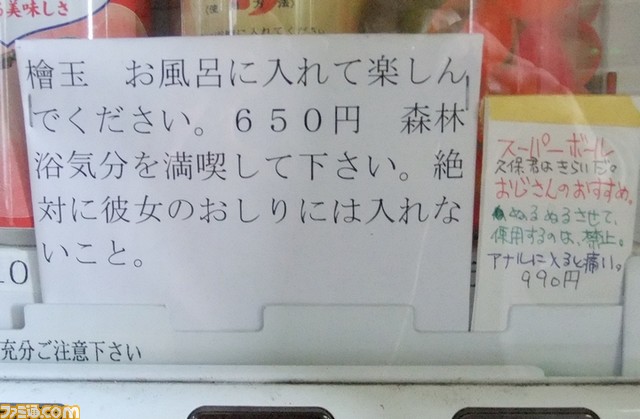 る美味しさ
檜玉　お風呂に入れて楽しん
でください。６５０円　森林
浴気分を満喫して下さい。絶
対に彼女のおしりには入れな
いこと。
スーパーボール
久保君はきらいだ。
おじさんのおすすめ。
ぬるぬるさせて、
使用するのは、禁止。
アナルに入ると痛い。
990円
10
充分ご注意下さい
ファミ通.com